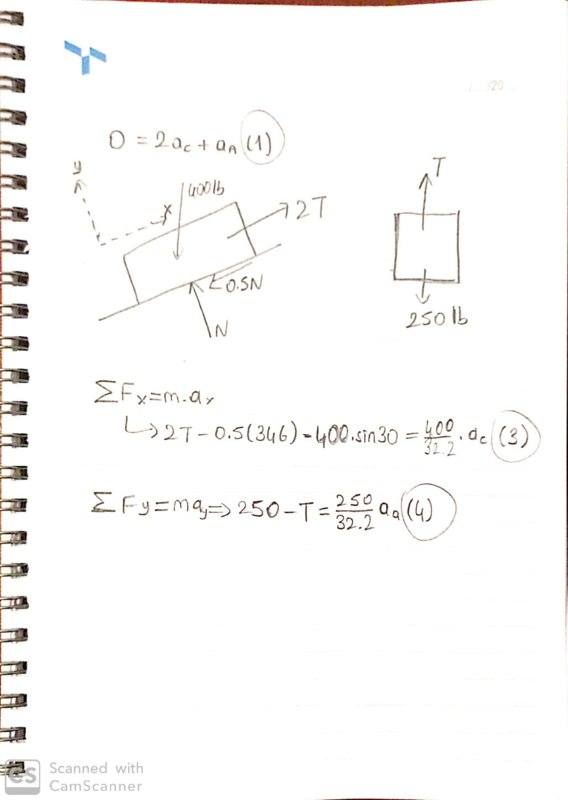 0 = 2a_c + a_A (1)
y
x
400lb
2T
0.5N
N
T
250 lb
ΣFx=m.ax
↳ 2T - 0.5(346) - 400.sin30 = 400/32.2 . a_c (3)
ΣFy=may ⇒ 250 - T = 250/32.2 a_a (4)
CS Scanned with
CamScanner